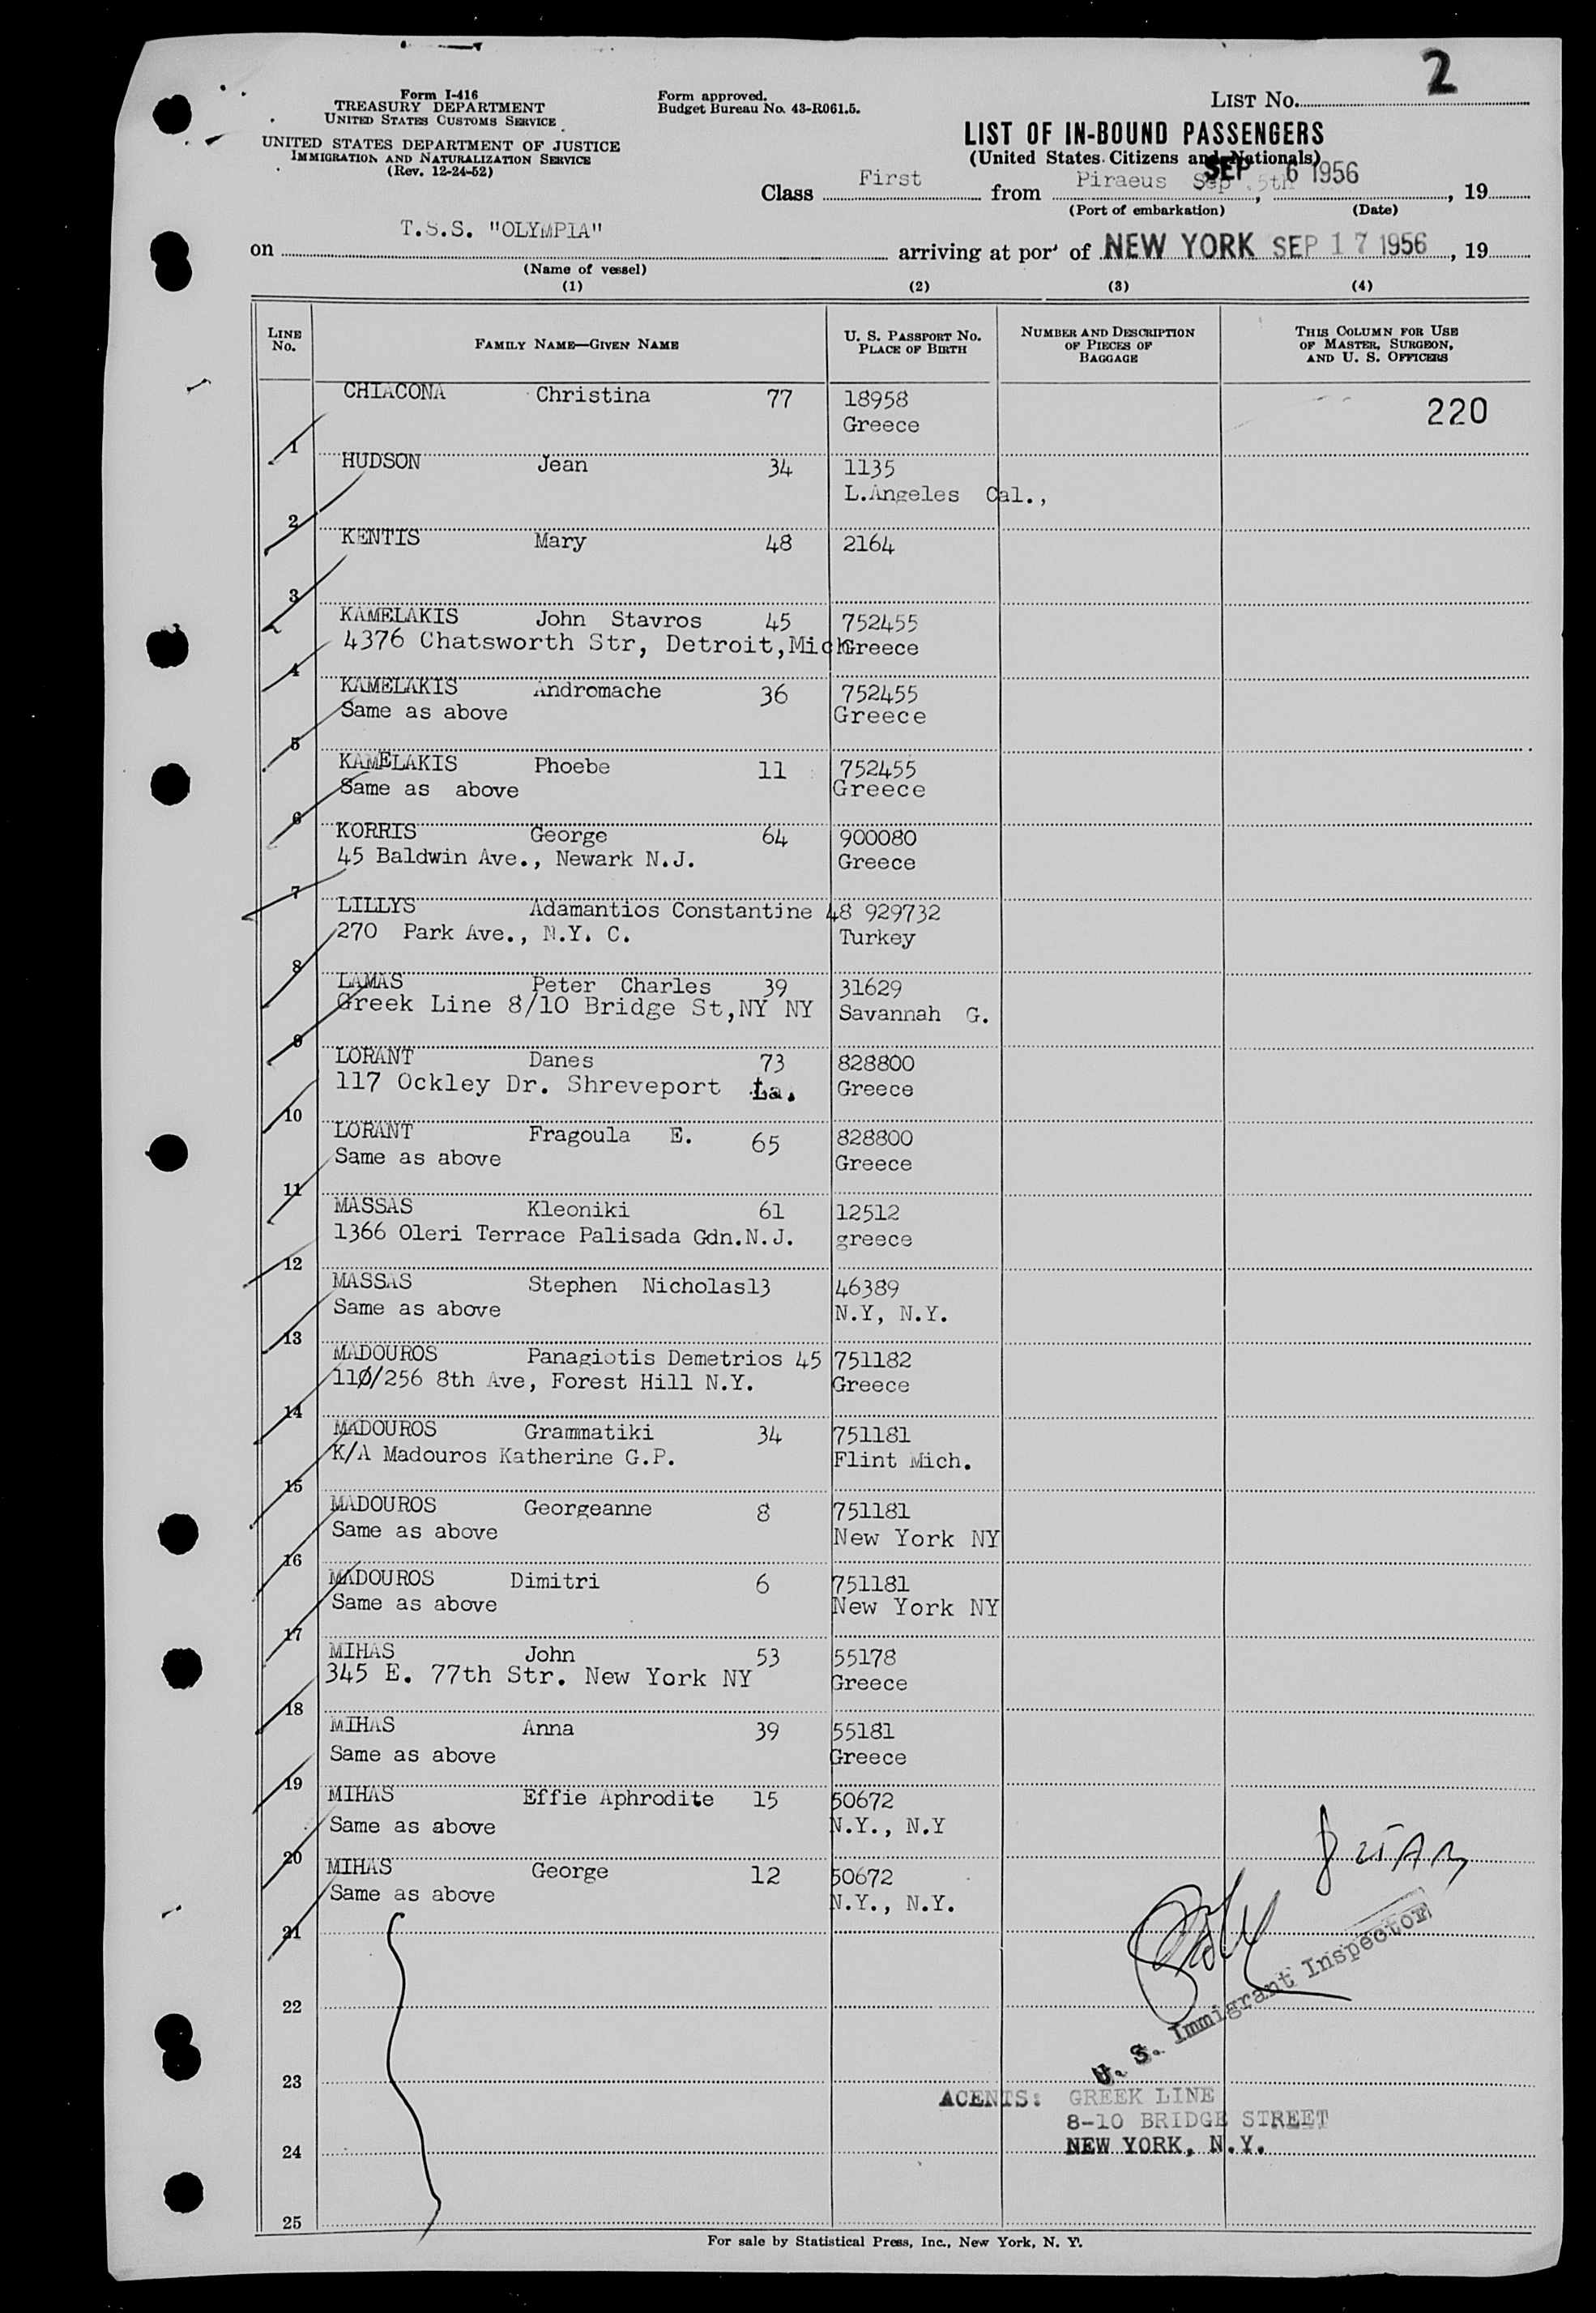 2
Form I-416
TREASURY DEPARTMENT
UNITED STATES CUSTOMS SERVICE
UNITED STATES DEPARTMENT OF JUSTICE
IMMIGRATION AND NATURALIZATION SERVICE
(Rev. 12-24-52)
Form approved.
Budget Bureau No. 43-R061.5.
LIST No.
LIST OF IN-BOUND PASSENGERS
(United States Citizens and Nationals)
SEP 6 1956
Class First from Piraeus Sep .5th , 19
(Port of embarkation) (Date)
on T.S.S. "OLYMPIA" arriving at port of NEW YORK SEP 17 1956 , 19
(Name of vessel)
(1) (2) (3) (4)
LINE No. FAMILY NAME—GIVEN NAME U. S. PASSPORT No. PLACE OF BIRTH NUMBER AND DESCRIPTION OF PIECES OF BAGGAGE THIS COLUMN FOR USE OF MASTER, SURGEON, AND U. S. OFFICERS
CHIACONA Christina 77 18958 220
Greece
1
HUDSON Jean 34 1135
L.Angeles Cal.,
2
KENTIS Mary 48 2164
3
KAMELAKIS John Stavros 45 752455
4376 Chatsworth Str, Detroit,Mich Greece
4
KAMELAKIS Andromache 36 752455
Same as above Greece
5
KAMELAKIS Phoebe 11 752455
Same as above Greece
6
KORRIS George 64 900080
45 Baldwin Ave., Newark N.J. Greece
7
LILLYS Adamantios Constantine 48 929732
270 Park Ave., N.Y. C. Turkey
8
LAMAS Peter Charles 39 31629
Greek Line 8/10 Bridge St,NY NY Savannah G.
9
LORANT Danes 73 828800
117 Ockley Dr. Shreveport La. Greece
10
LORANT Fragoula E. 65 828800
Same as above Greece
11
MASSAS Kleoniki 61 12512
1366 Oleri Terrace Palisada Gdn.N.J. greece
12
MASSAS Stephen Nicholas13 46389
Same as above N.Y, N.Y.
13
MADOUROS Panagiotis Demetrios 45 751182
110/256 8th Ave, Forest Hill N.Y. Greece
14
MADOUROS Grammatiki 34 751181
K/A Madouros Katherine G.P. Flint Mich.
15
MADOUROS Georgeanne 8 751181
Same as above New York NY
16
MADOUROS Dimitri 6 751181
Same as above New York NY
17
MIHAS John 53 55178
345 E. 77th Str. New York NY Greece
18
MIHAS Anna 39 55181
Same as above Greece
19
MIHAS Effie Aphrodite 15 50672
Same as above N.Y., N.Y
20
MIHAS George 12 50672
Same as above N.Y., N.Y.
21
U. S. Immigrant Inspector
22
23
AGENTS: GREEK LINE
8-10 BRIDGE STREET
NEW YORK, N.Y.
24
25
For sale by Statistical Press, Inc., New York, N. Y.